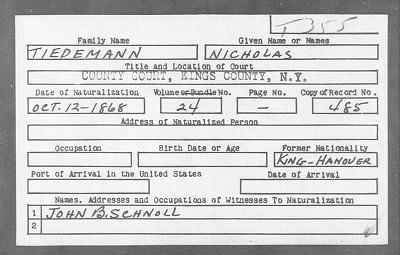 T355
Family Name Given Name or Names
TIEDEMANN NICHOLAS
Title and Location of Court
COUNTY COURT, KINGS COUNTY, N.Y.
Date of Naturalization Volume or Bundle No. Page No. Copy of Record No.
OCT. 12-1868 24 — 485
Address of Naturalized Person
Occupation Birth Date or Age Former Nationality
KING-HANOVER
Port of Arrival in the United States Date of Arrival
Names, Addresses and Occupations of Witnesses To Naturalization
1 JOHN B. SCHNOLL
2